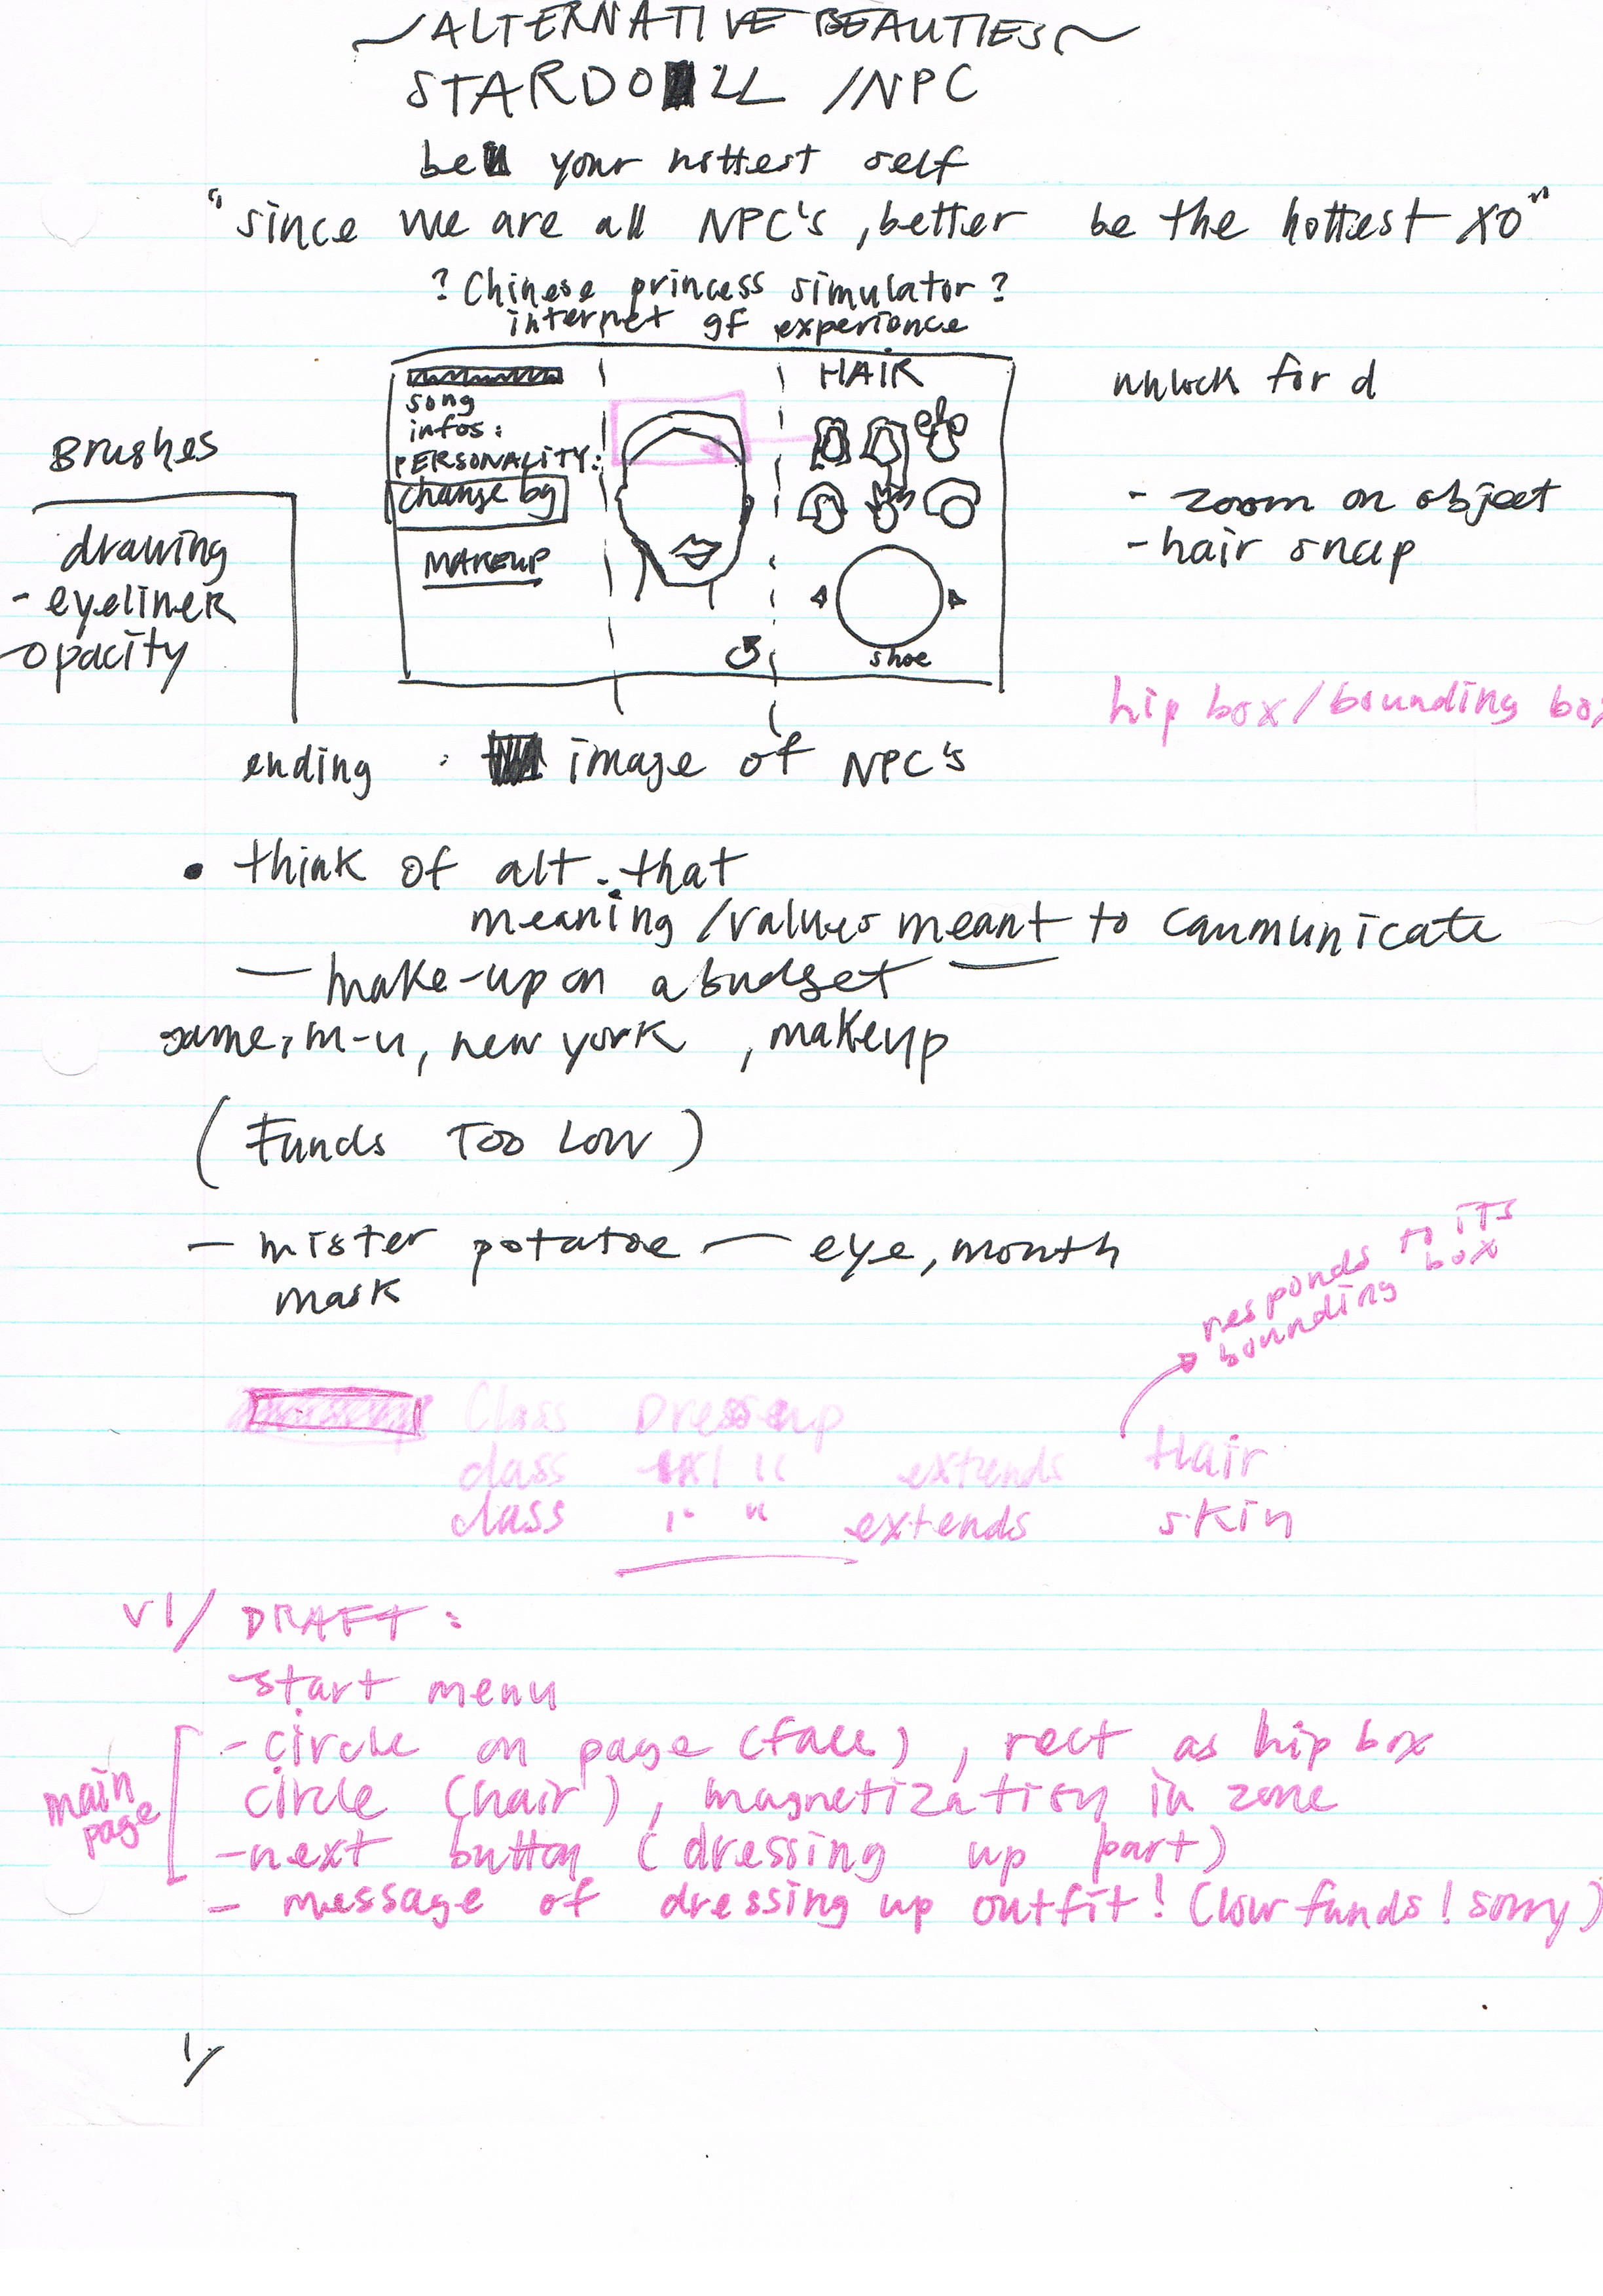 ~ALTERNATIVE BEAUTIES~
STARDOLL /NPC
be your hottest self
"since we are all NPC's, better be the hottest XO"
? Chinese princess simulator ?
internet gf experience
HAIR
song
infos:
PERSONALITY:
change bg
MAKEUP
shoe
unlock for d
- zoom on object
- hair snap
Brushes
drawing
- eyeliner
- opacity
hip box/bounding box
ending : image of NPC's
• think of alt. that
meaning /values meant to communicate
— make-up on a budget —
game, m-u, new york, makeup
(Funds Too Low)
— mister potatoe — eye, mouth
mask
responds to its
bounding box
Class Dressup
class " extends Hair
class " " extends skin
v1/ DRAFT:
- start menu
main page
- circle on page (face), rect as hip box
circle (hair), magnetization in zone
- next button (dressing up part)
- message of dressing up outfit! (low funds! sorry)
1/